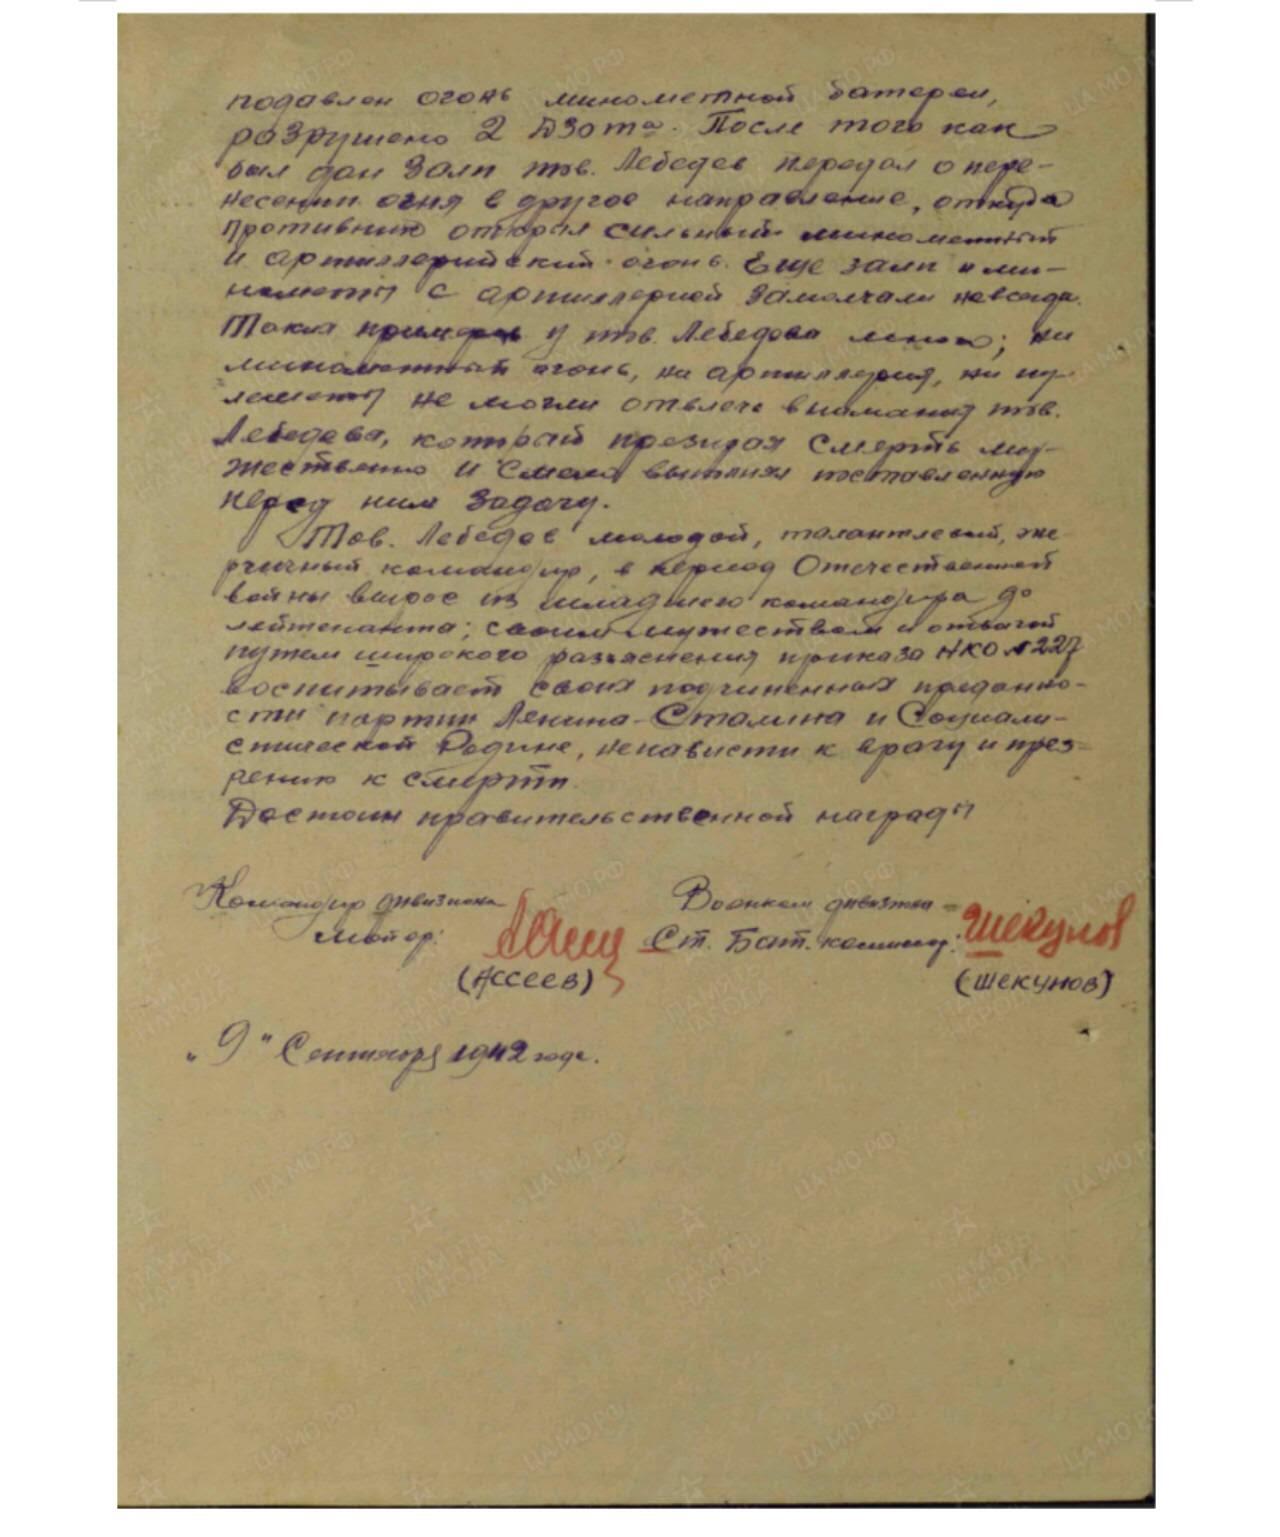 подавлен огонь минометной батереи,
разрушено 2 ДЗОТа. После того как
был дан залп тов. Лебедев передал о пере-
несении огня в другое направление, откуда
противник открыл сильный минометный
и артиллерийский огонь. Еще залп и ми-
нометы с артиллерией замолчали навсегда.
Таких примеров у тов. Лебедева много; ни
минометный огонь, ни артиллерия, ни пу-
леметы не могли отвлечь внимания тов.
Лебедева, который презирая смерть му-
жественно и смело выполнял поставленную
перед ним задачу.
Тов. Лебедев молодой, талантлевый, эне-
ргичный командир, в период Отечественной
войны вырос из младшего командира до
лейтенанта; своим мужеством и отвагой
путем широкого разъяснения приказа НКО №227
воспитывает своих подчиненных преданно-
сти партии Ленина-Сталина и Социали-
стической Родине, ненависти к врагу и през-
рению к смерти.
Достоин правительственной награды
Командир дивизиона Военком дивизиона -
Майор: Ст. Бат. комиссар: Шекунов
(Ассеев) (Шекунов)
„9" Сентября 1942 года.
ПАМЯТЬ НАРОДА
ЦАМО.РФ